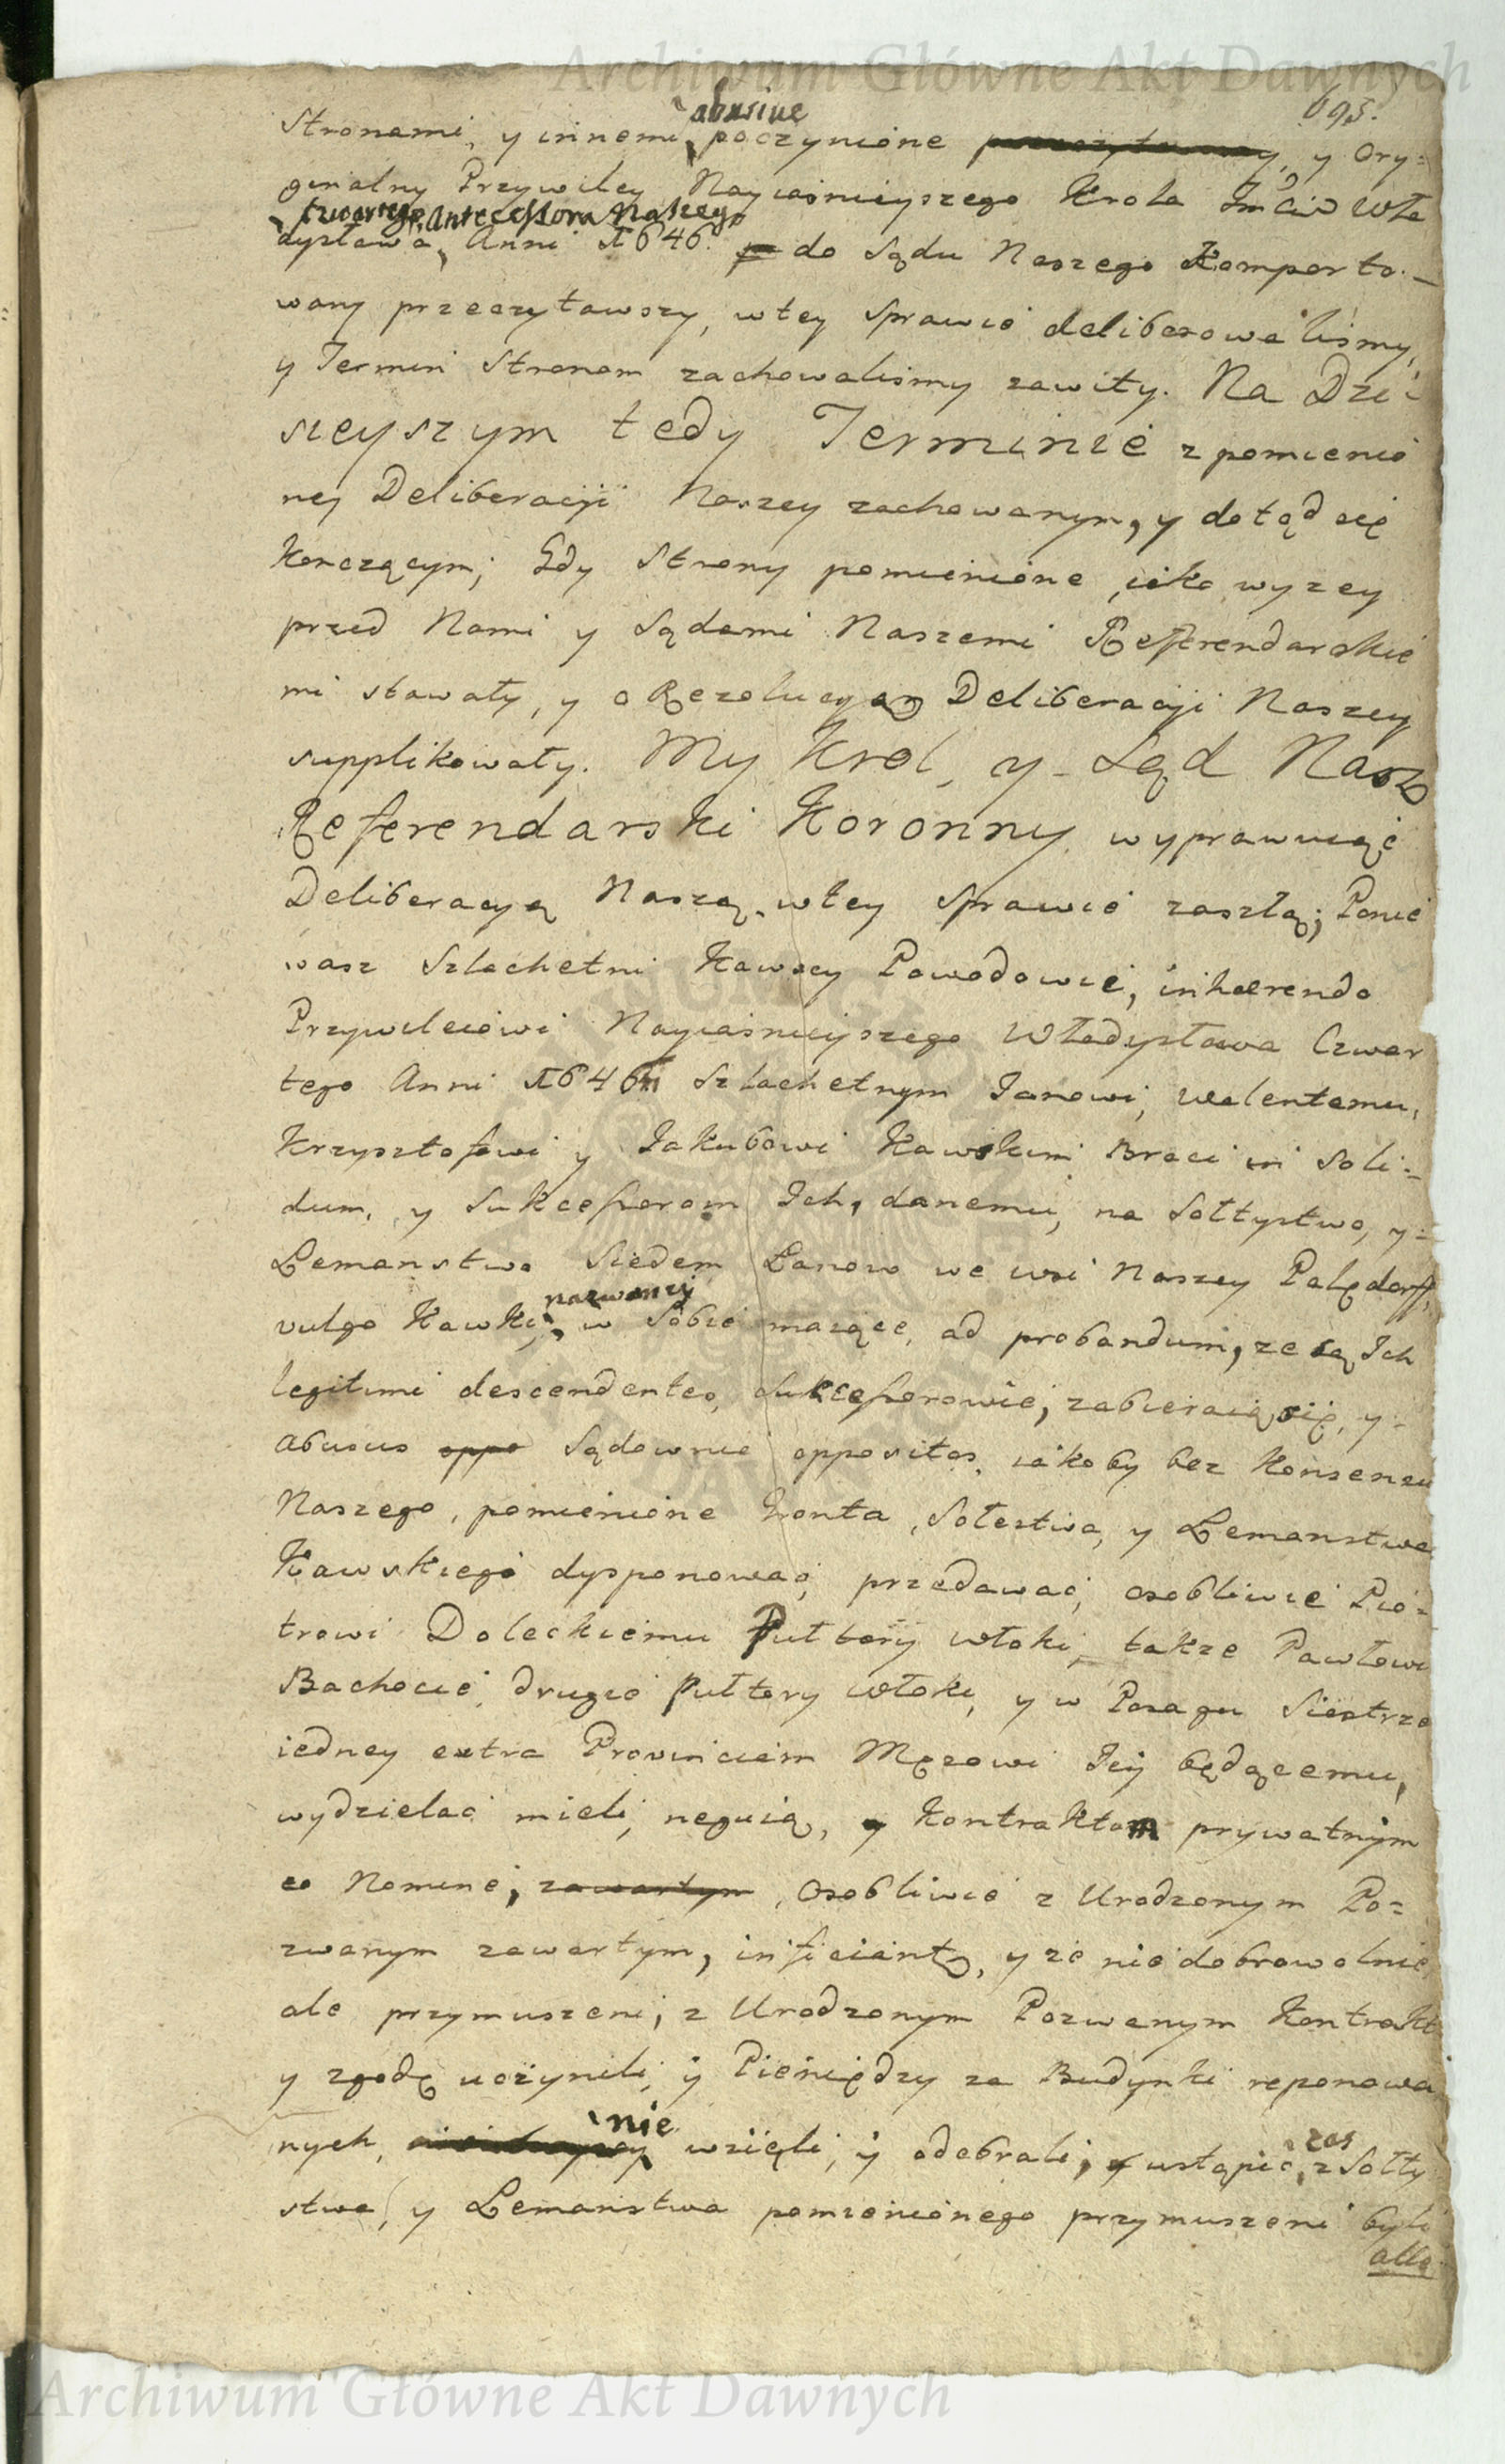 Archiwum Główne Akt Dawnych
695.
abusive
Stronami, y innemi, poczynione y Ory-
ginalny Przywiley Nayiasnieyszego Krola Jmci Wła
czwartego, Antecessora Naszego
dysława, Anni 1646. do Sądu Naszego Komporto-
wany przeczytawszy, w tey Sprawie deliberowaliśmy,
y Termin Stronom zachowaliśmy zawity. Na Dzi-
sieyszym tedy Terminie z pomienio
ney Deliberacji Naszey zachowanym, y dotąd się
Konczącym; Gdy Strony pomienione iako wyzey
przed Nami y Sądami Naszemi Referendarskie
mi stawały, y o Rezolucyą Deliberacji Naszey
supplikowały. My Krol, y Sąd Nasz
Referendarski Koronny wyprawuiąc
Deliberacyą Naszą w tey Sprawie zaszłą; Ponie
wasz Szlachetni Kawscy Powodowie, inhaerendo
Przywileiowi Nayiasnieyszego Władysława Czwar
tego Anni 1646 Szlachetnym Janowi, Walentemu,
Krzysztofowi y Jakubowi Kawskim Braci in Soli-
dum, y Sukcessorom Ich, danemu, na Sołtystwo, y-
Lemanstwo Siedem Łanow we wsi Naszey Palędorff,
nazwaney
vulgo Kawki, w Sobie maiące, ad probandum, ze są Ich
legitimi descendentes, Sukcessorowie, zabieraią się, y-
abusus oppo Sądownie oppositos, iakoby bez Konsensu
Naszego, pomienione Gronta, Sołestwa, y Lemanstwa
Kawskiego dysponować, przedawać, osobliwie Pio-
trowi Doleckiemu Pułtory włoki, takze Pawłowi
Bachocie drugie pułtory włoki, y w Posagu Siestrze
iedney extra Provinciam Męzowi Jey będącemu,
wydzielać mieli, neguią, y Kontraktom prywatnym
eo Nomine, zawartym, Osobliwie z Urodzonym Po-
zwanym zawartym, inficiantur, y ze nie dobrowolnie
ale przymuszeni, z Urodzonym Pozwanym Kontrakt
y zgodę uczynili, y Pieniędzy za Budynki reponowa
nie
nych, wzięli, y odebrali, y ustąpić, z Sołty
zas
stwa, y Lemanstwa pomienionego przymuszeni byli
Archiwum Główne Akt Dawnych